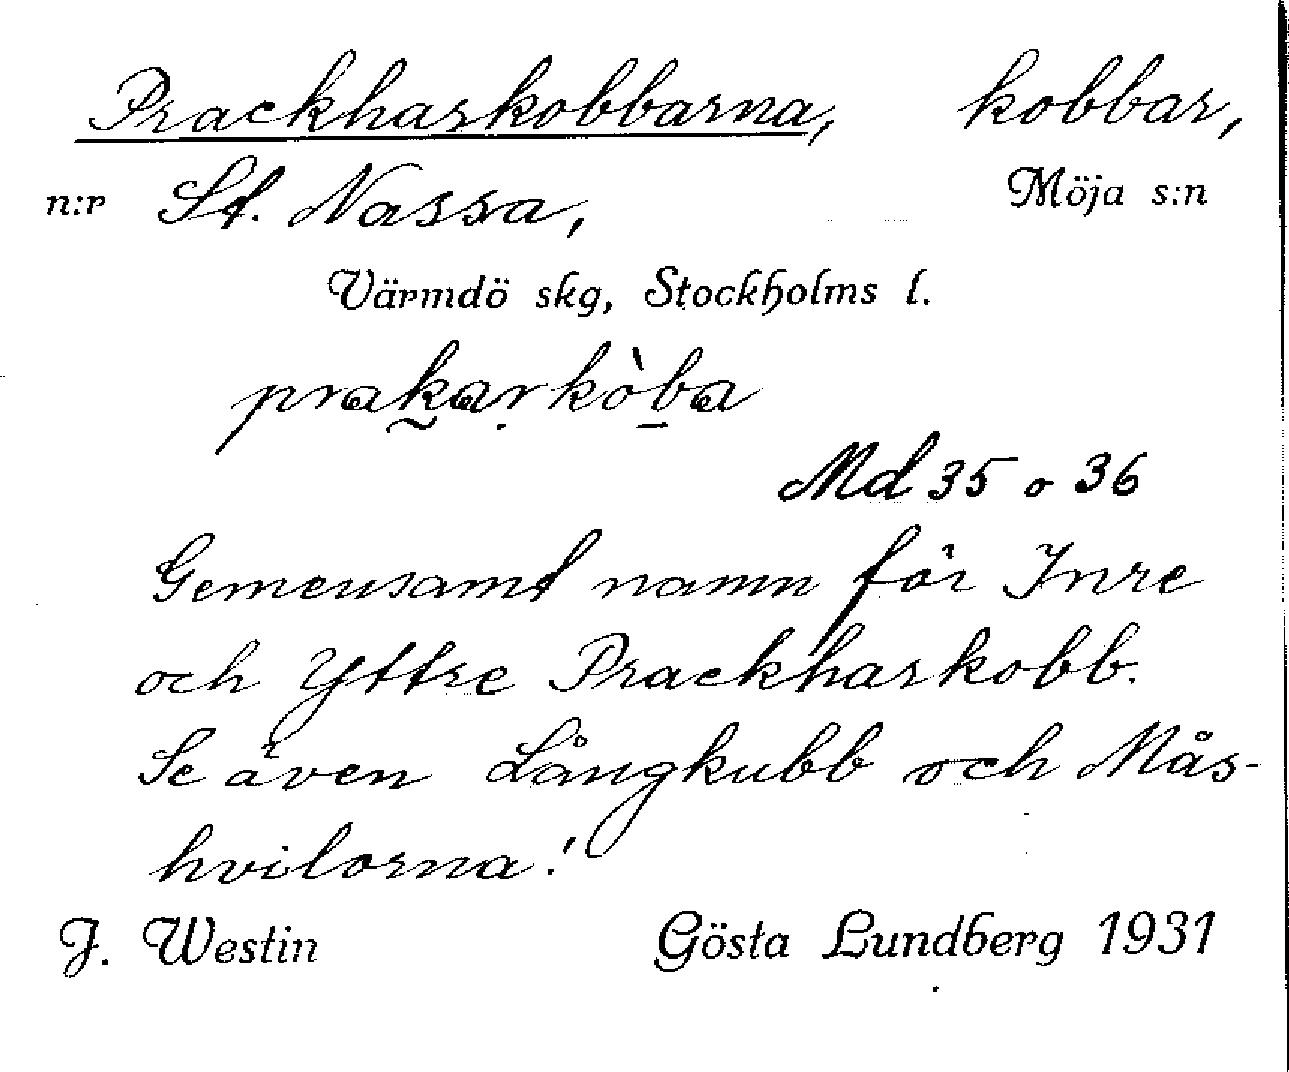 Prackharkobbarna, kobbar,
n:r St. Nassa, Möja s:n
Värmdö skg, Stockholms l.
prakarkòba
Md 35 o 36
Gemensamt namn för Inre
och Yttre Prackharkobb.
Se även Långkubb och Mås-
hvilorna!
J. Westin Gösta Lundberg 1931